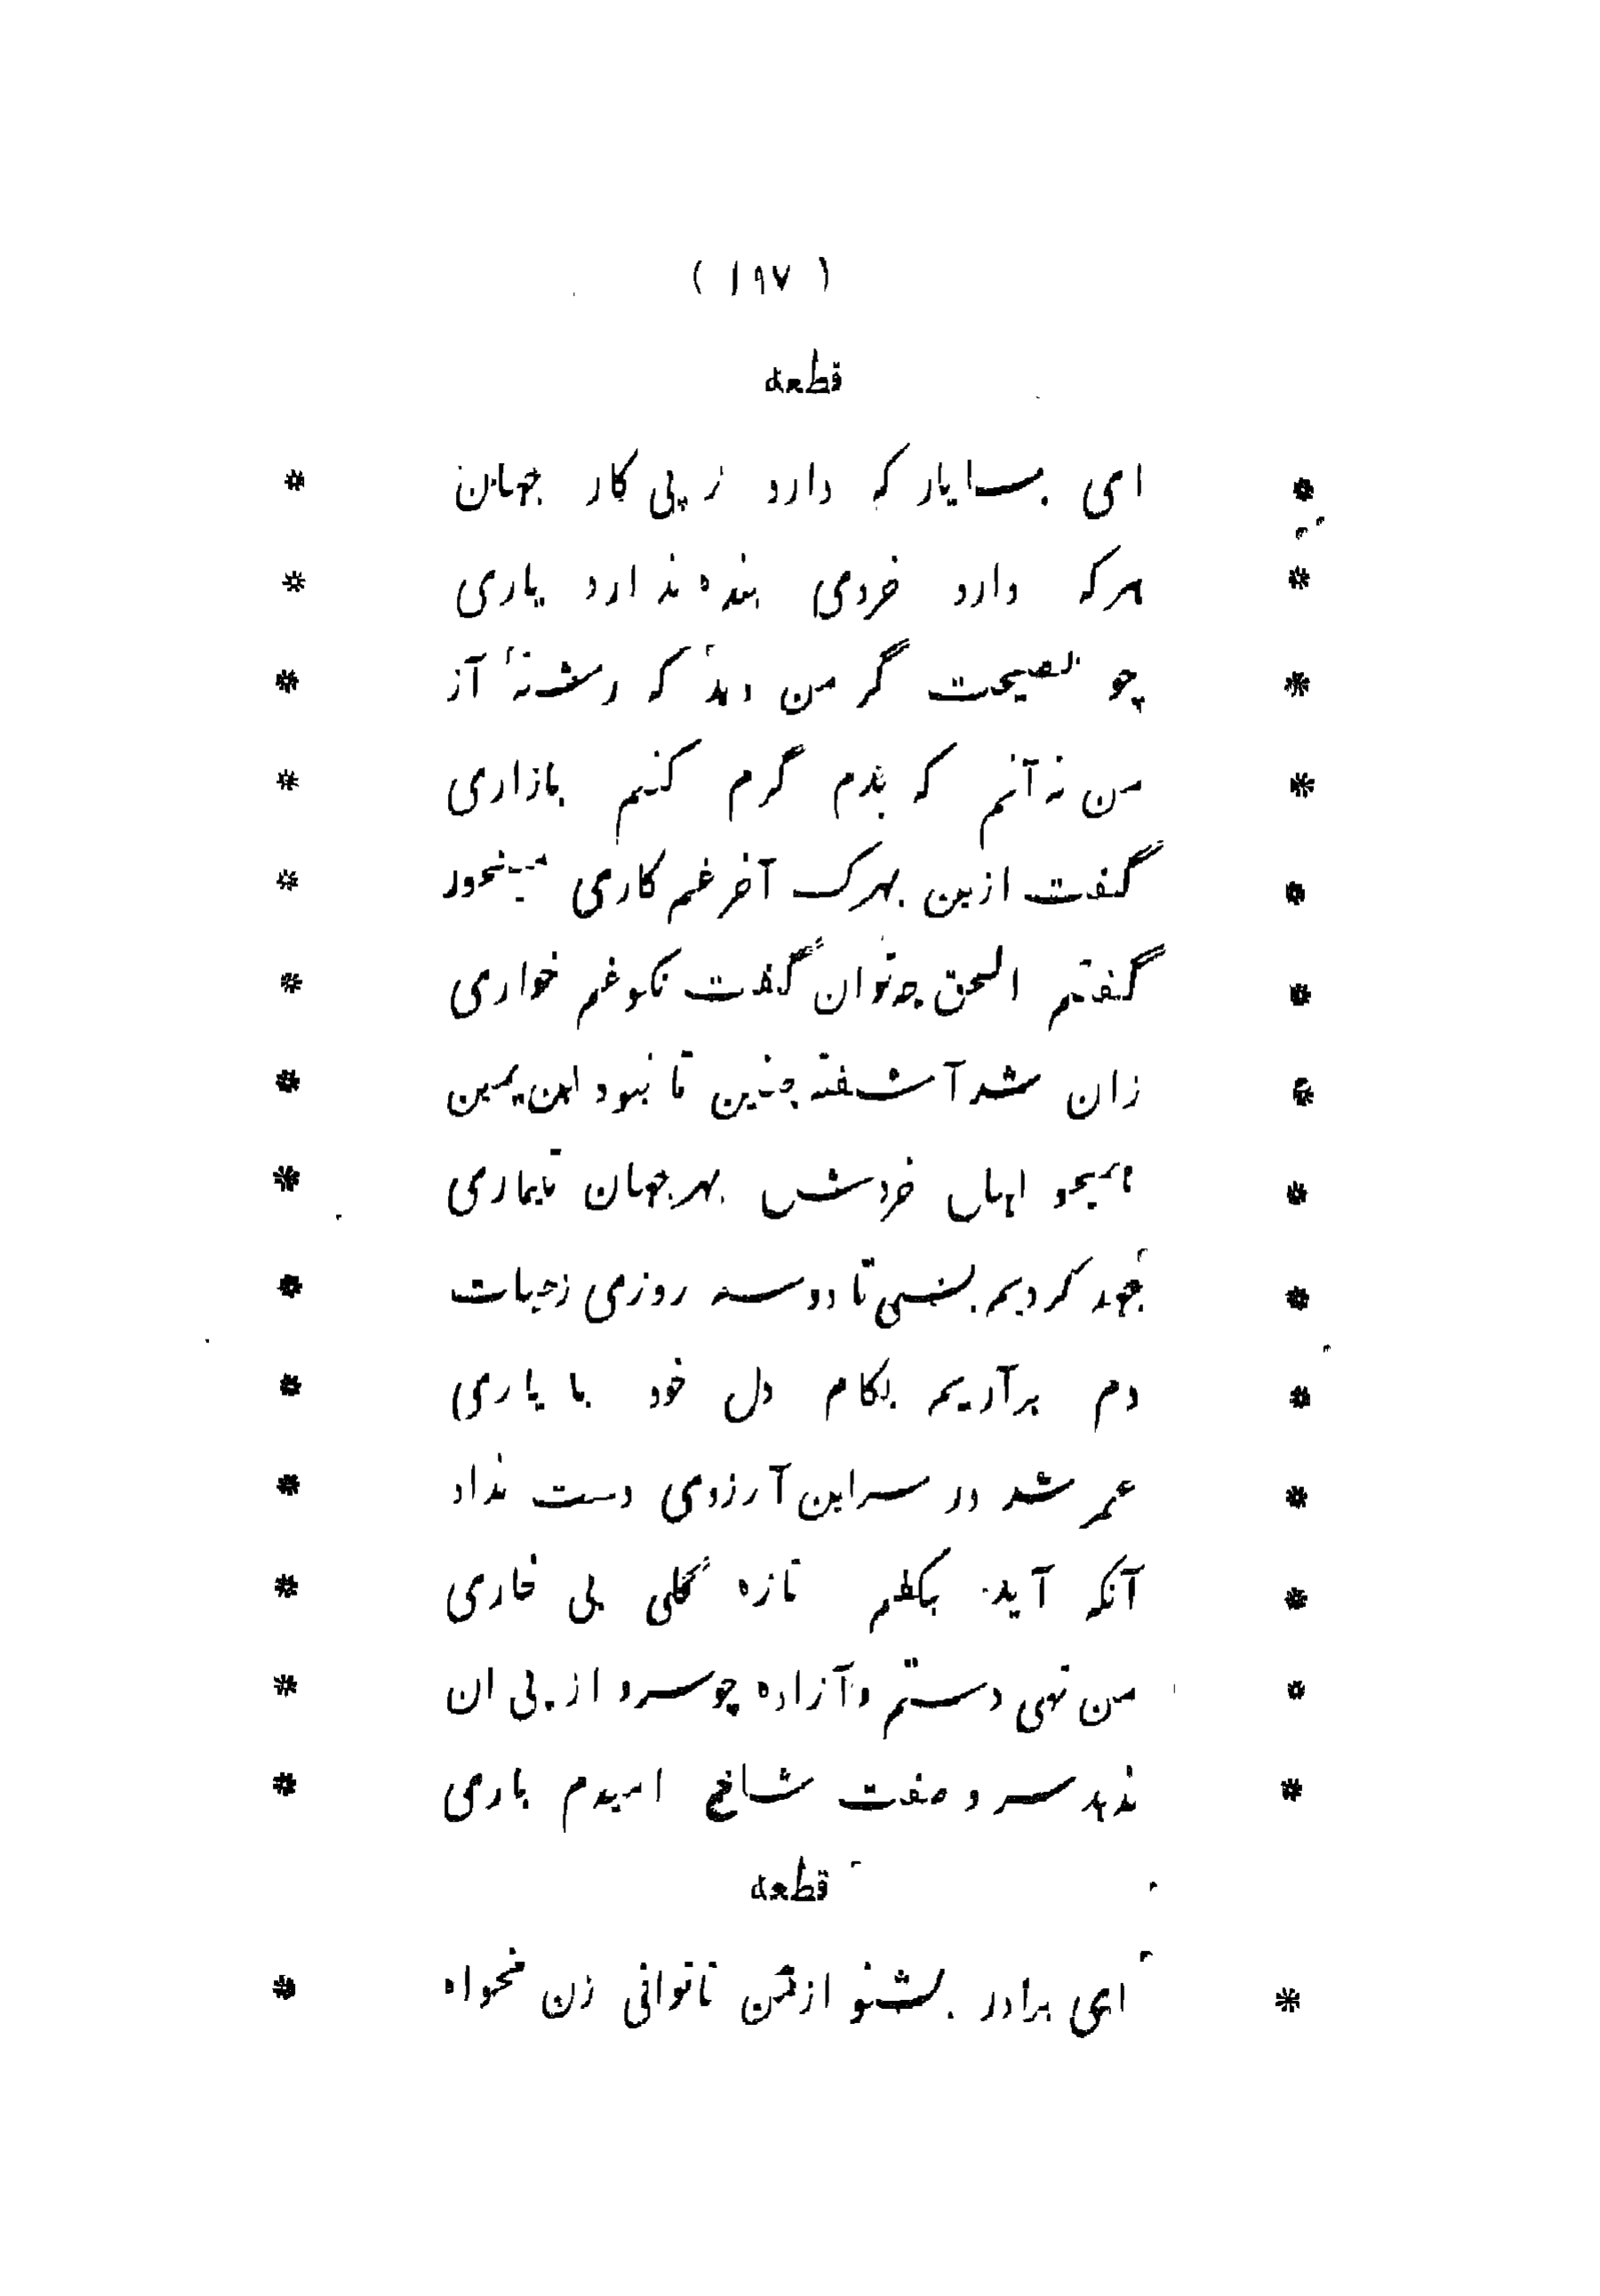 ( ١٩٧ )
قطعه
* ای بسا یار که دارد ز پی کار جهان *
* هرکه دارد خردی بنده ندارد یاری *
* چو نصیحت گر من دید که رشتهٔ آز *
* من نه آنم که بدم گرم کنم بازاری *
* گفت ازین بهرک آخر غم کاری میخور *
* گفتم الحق چه توان گفت نکو غم خواری *
* زان شد آشفته چنین تا نبود ابن یمین *
* همچو اهل خردش بهر جهان تیماری *
* جهد کردیم بسی تا دو سه روزی ز حیات *
* دم برآریم بکام دل خود با یاری *
* عمر شد در سر این آرزوی دست نداد *
* آنکه آید بکفم تازه گلی بی خاری *
* من تهی دستم و آزاده چو سرو از پی ان *
* ندهد سرو صفت شاخ امیدم باری *
قطعه
* ای برادر بشنو از من تا توانی زن مخواه *